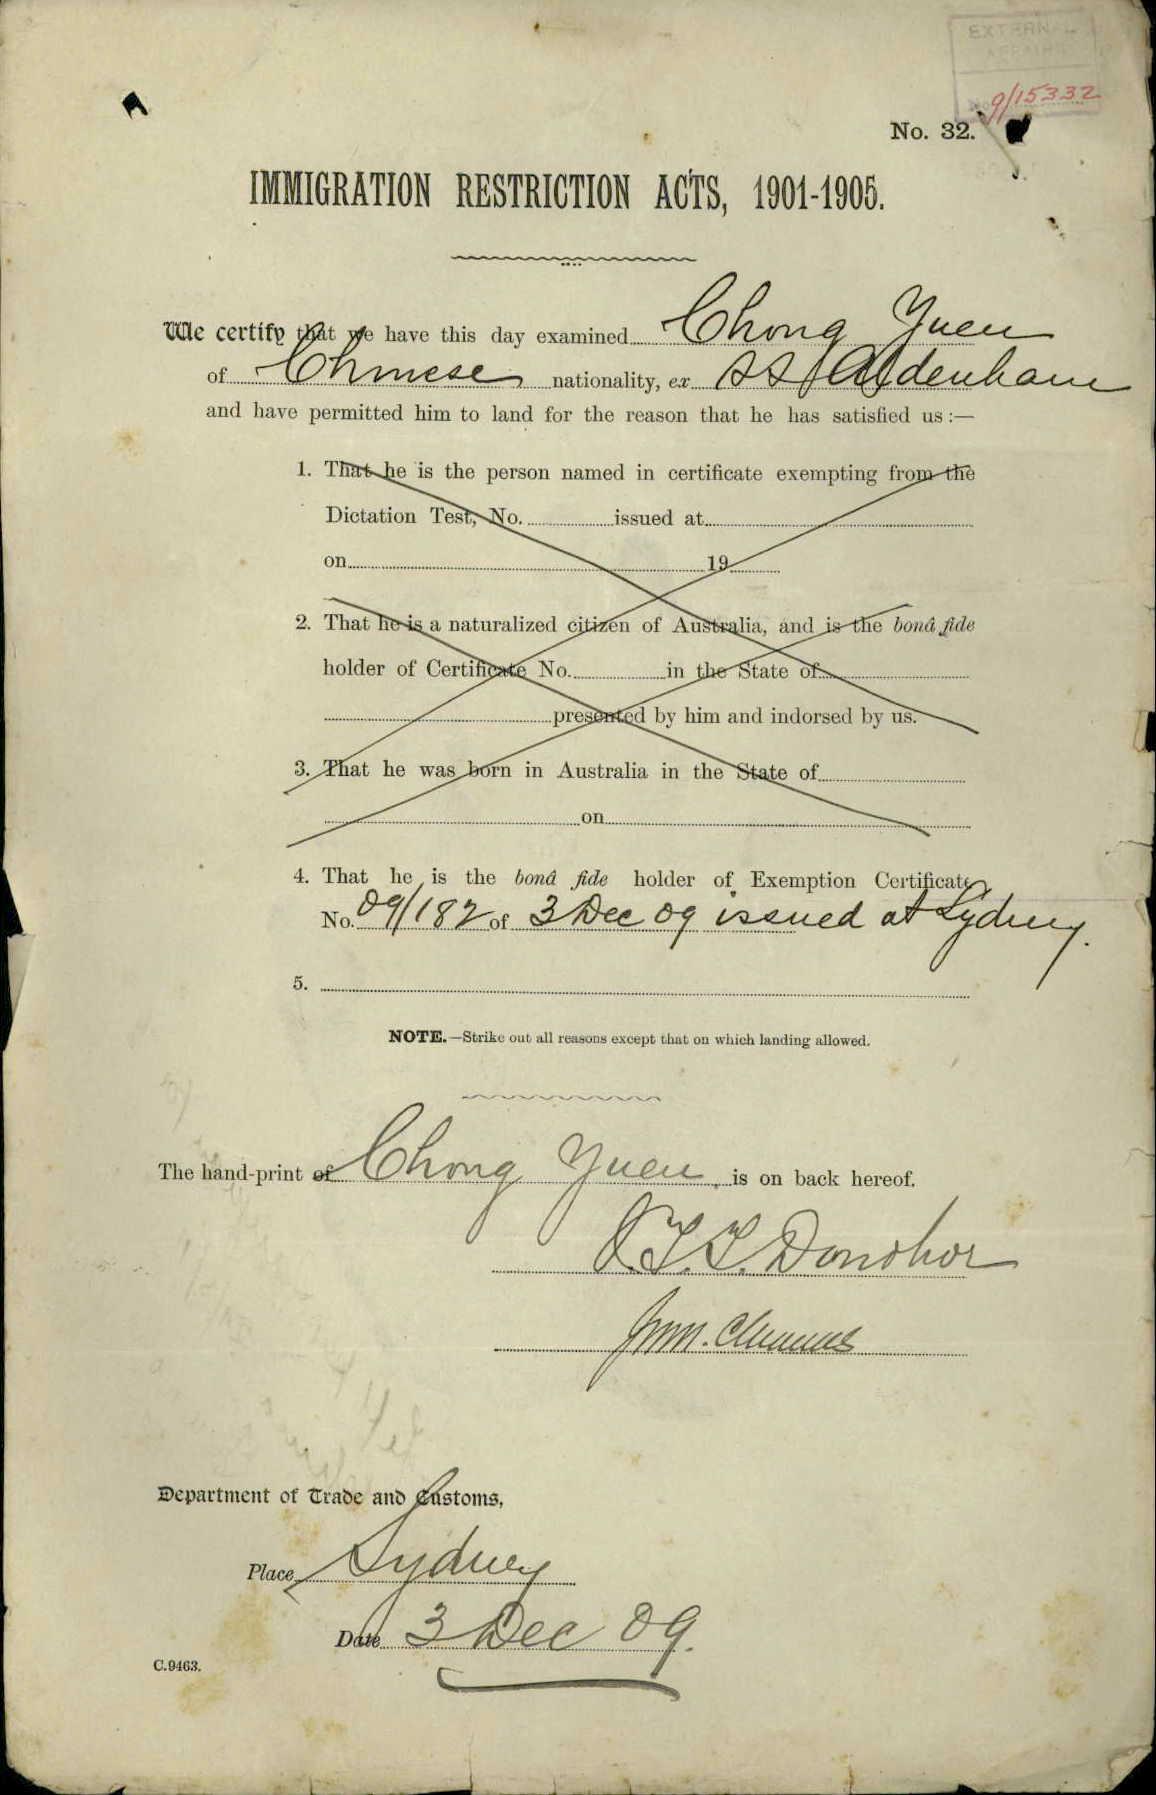 EXTERNAL
AFFAIRS
9/15332
No. 32.
IMMIGRATION RESTRICTION ACTS, 1901-1905.
We certify that we have this day examined Chong Yuen
of Chinese nationality, ex SS Aldenham
and have permitted him to land for the reason that he has satisfied us :—
1. That he is the person named in certificate exempting from the
Dictation Test, No. issued at
on 19
2. That he is a naturalized citizen of Australia, and is the bonâ fide
holder of Certificate No. in the State of
presented by him and indorsed by us.
3. That he was born in Australia in the State of
on
4. That he is the bonâ fide holder of Exemption Certificate
No. 09/182 of 3 Dec 09 issued at Sydney.
5.
NOTE.—Strike out all reasons except that on which landing allowed.
The hand-print of Chong Yuen, is on back hereof.
J.T.T. Donohoe
Department of Trade and Customs,
Place Sydney
Date 3 Dec 09.
C.9463.